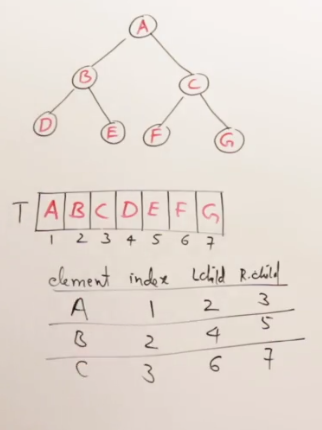 A
B C
D E F G
T A B C D E F G
1 2 3 4 5 6 7
element index Lchild R.child
A 1 2 3
B 2 4 5
C 3 6 7